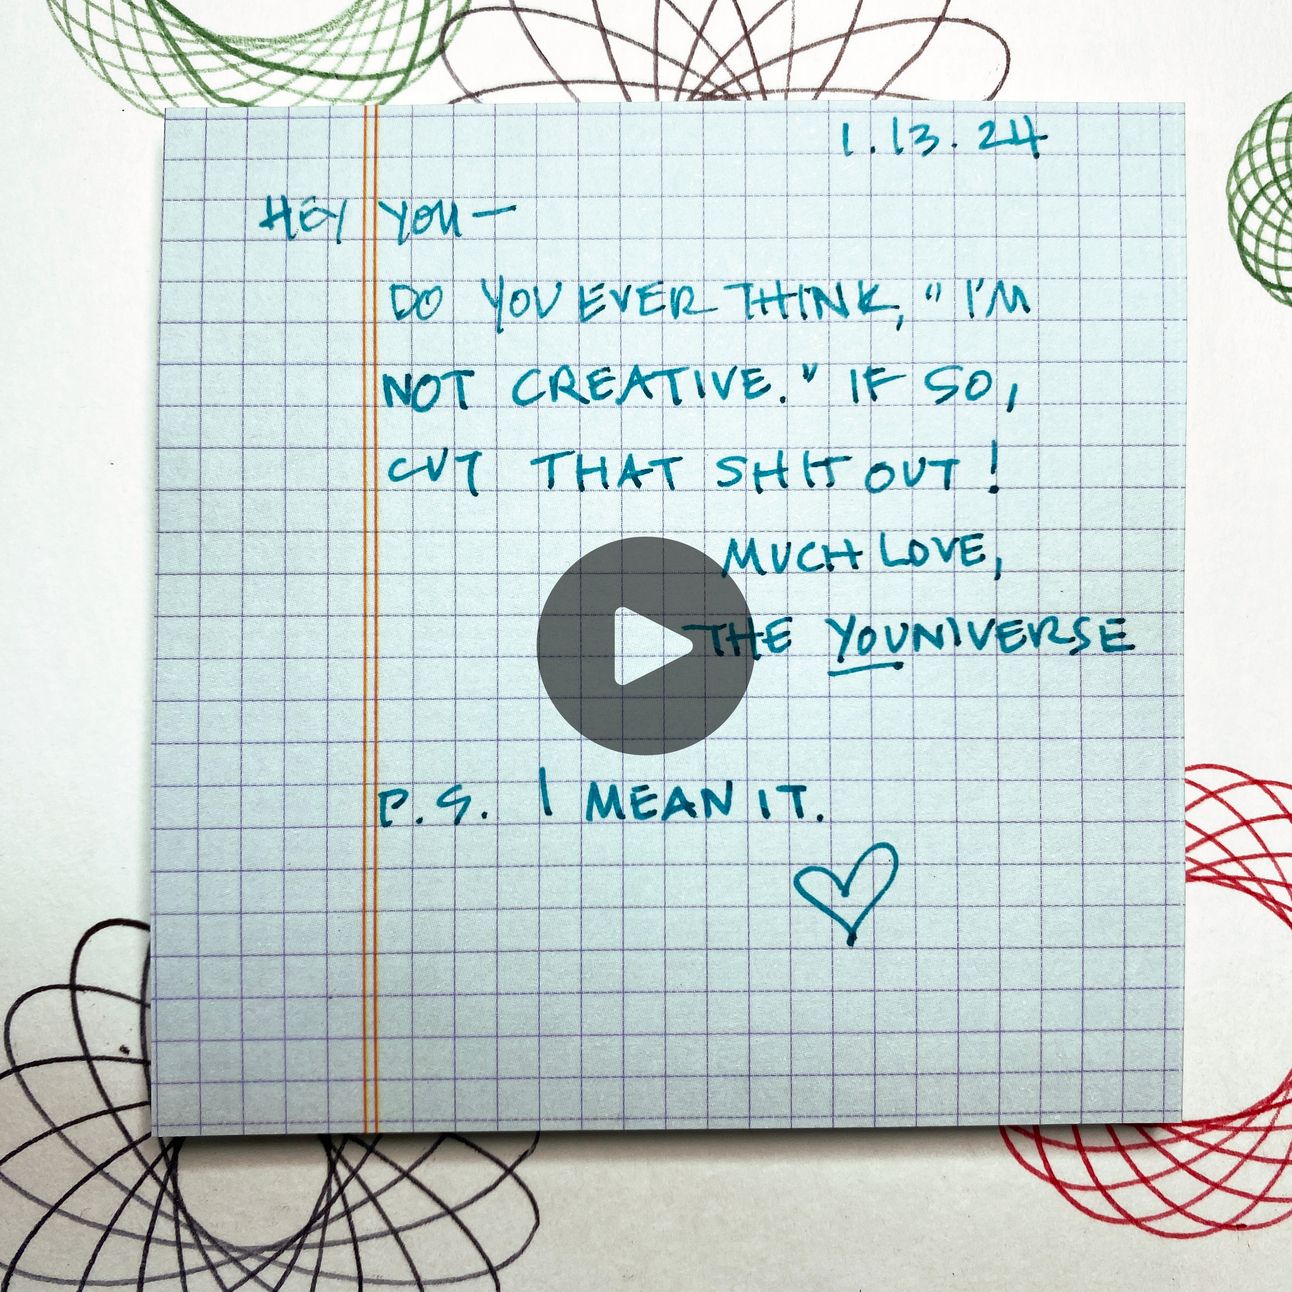 1.13.24
HEY YOU—
DO YOU EVER THINK, "I'M
NOT CREATIVE." IF SO,
CUT THAT SHIT OUT!
MUCH LOVE,
THE YOUNIVERSE
P.S. I MEAN IT.